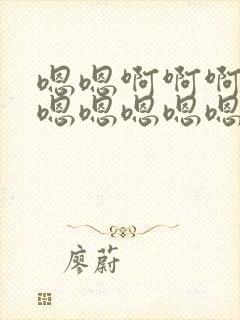 嗯嗯啊啊啊
嗯嗯嗯嗯嗯
廖蔚